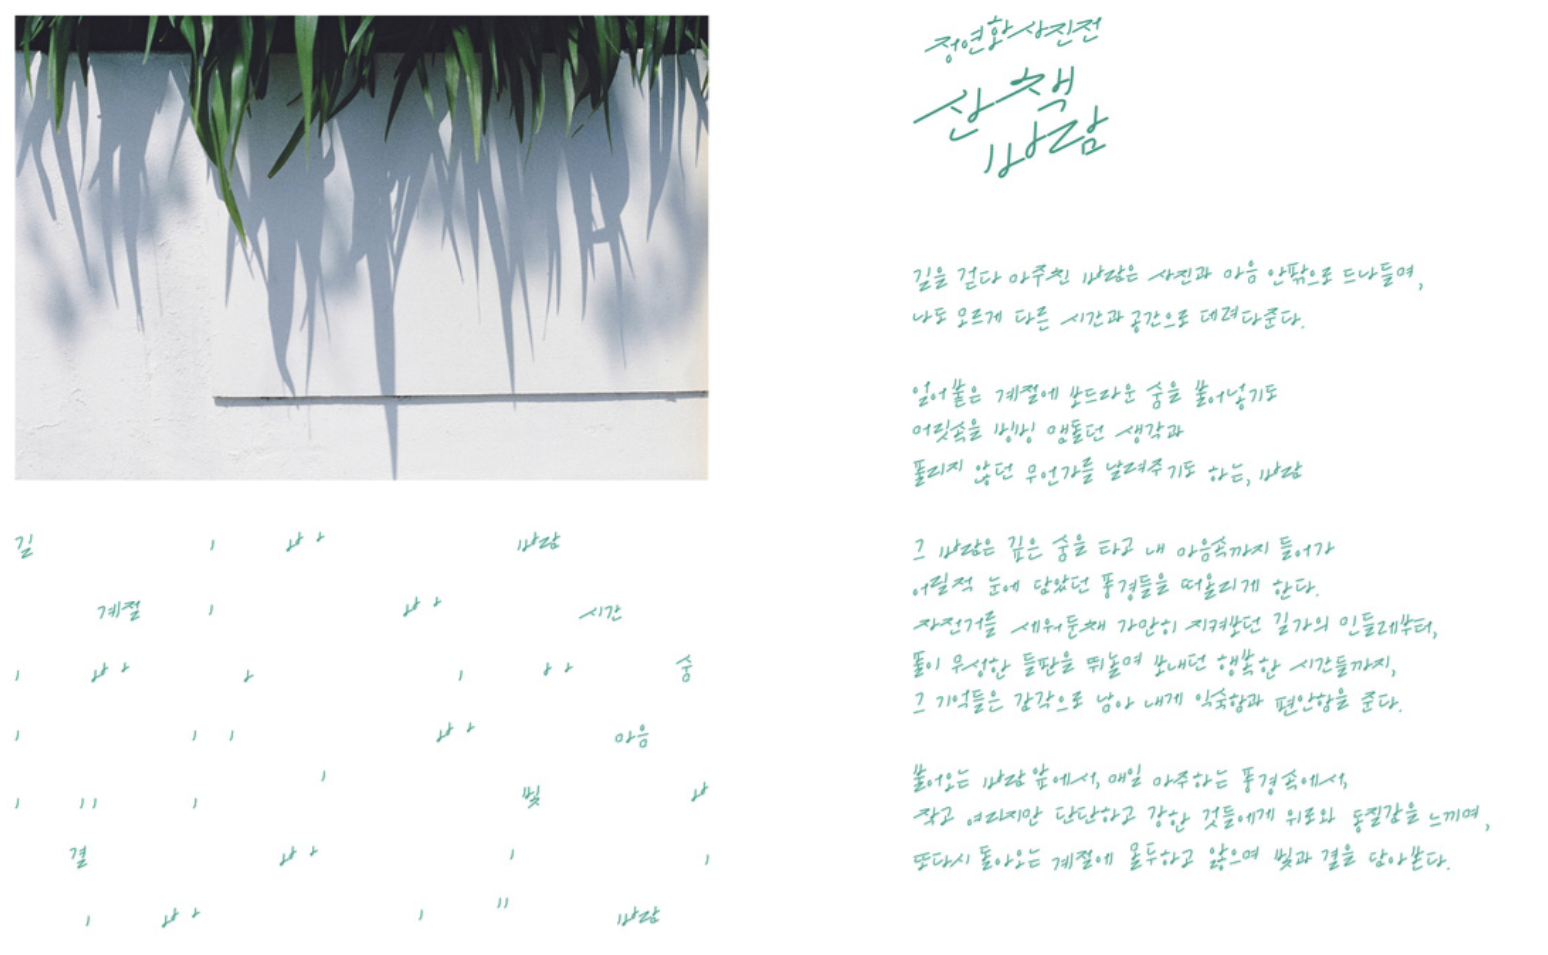 길 바람
계절 시간
숨
마음
빛
결
바람
정연화 사진전
산책
바람
길을 걷다 마주친 바람은 사진과 마음 안팎으로 드나들며,
나도 모르게 다른 시간과 공간으로 데려다준다.
얼어붙은 계절에 보드라운 숨을 불어넣기도
머릿속을 빙빙 맴돌던 생각과
풀리지 않던 무언가를 날려주기도 하는, 바람
그 바람은 깊은 숨을 타고 내 마음속까지 들어가
어릴적 눈에 담았던 풍경들을 떠올리게 한다.
자전거를 세워둔채 가만히 지켜보던 길가의 민들레부터,
풀이 무성한 들판을 뛰놀며 보내던 행복한 시간들까지,
그 기억들은 감각으로 남아 내게 익숙함과 편안함을 준다.
불어오는 바람 앞에서, 매일 마주하는 풍경속에서,
작고 여리지만 단단하고 강한 것들에게 위로와 동질감을 느끼며,
또다시 돌아오는 계절에 몰두하고 앓으며 빛과 결을 담아본다.